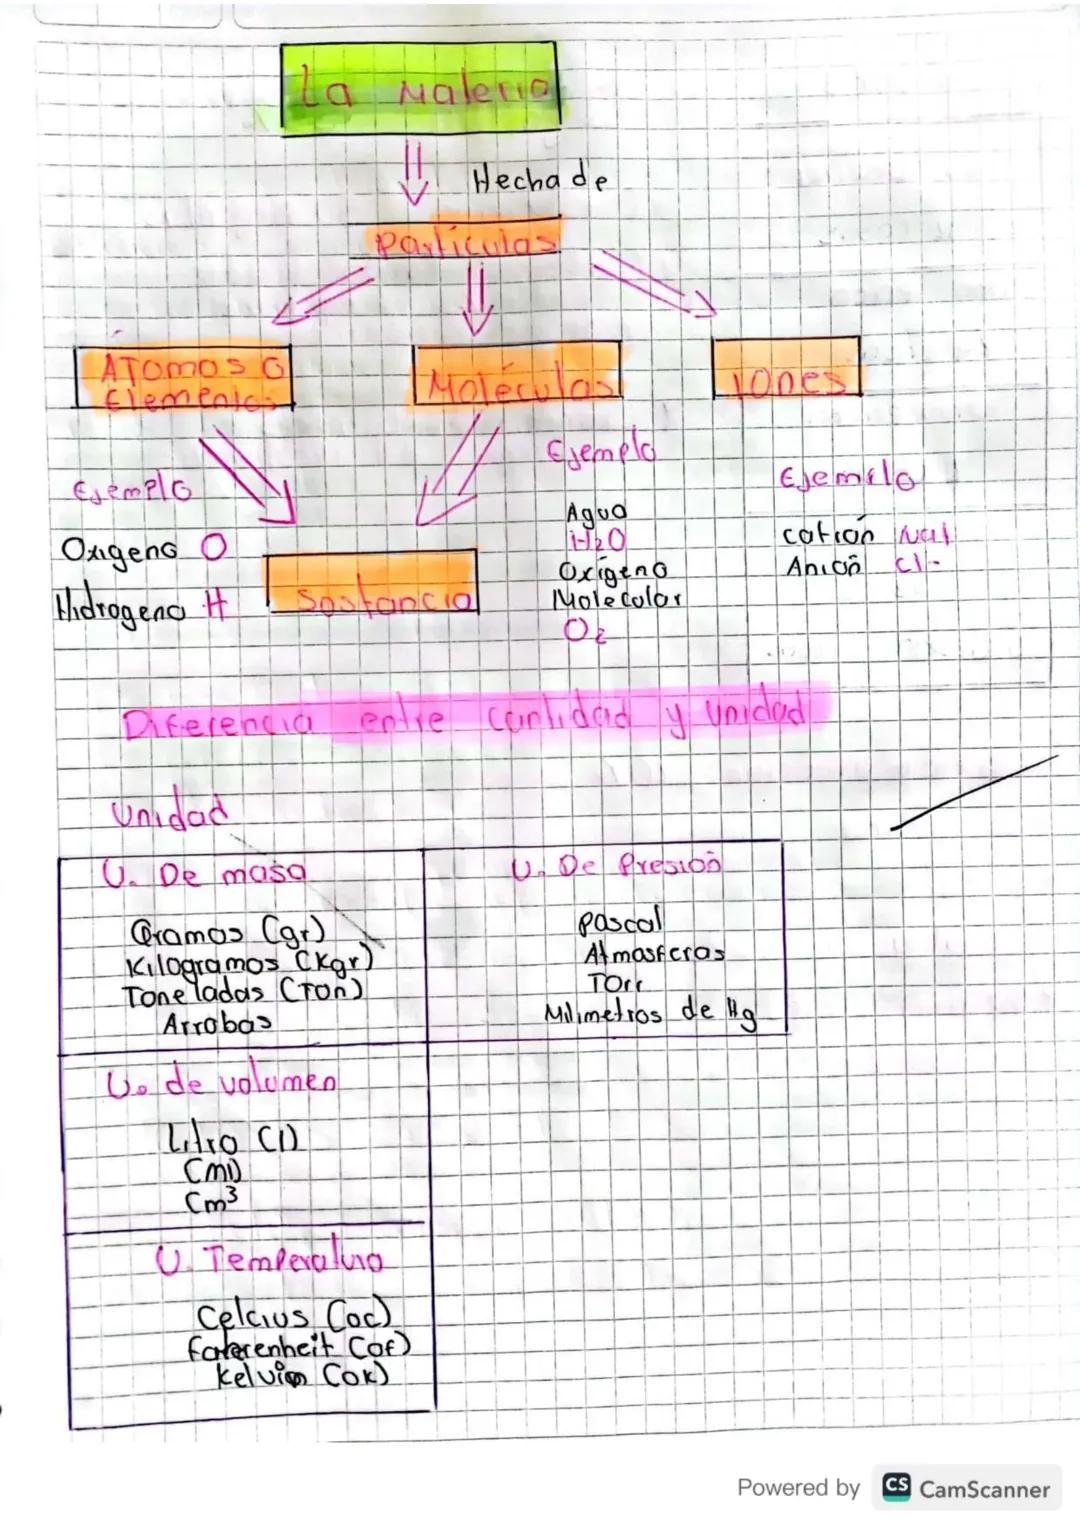 La Materia
Hecha de
Partículas
ÁTomos o
Elementos
Moléculas
iones
Ejemplo
Oxigeno O
Hidrogeno H
Sostancia
Ejemplo
Agua
H2O
Oxígeno
Molecular
O2
Ejemplo
catión Na+
Anión Cl-
Diferencia entre cantidad y unidad
Unidad
U. De masa
Gramos (gr)
Kilogramos (Kgr)
Toneladas (Ton)
Arrobas
U. De Presión
pascal
Atmosferas
TOrr
Milimetros de Hg
U. de volumen
Litro (l)
(ml)
Cm³
U. Temperatura
Celcius (oc)
farerenheit (of)
kelvin (oK)
Powered by CS CamScanner